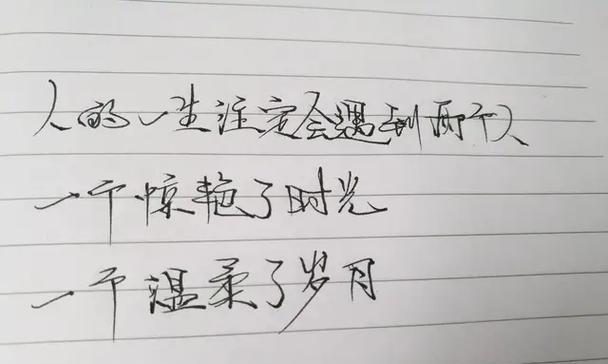 人的一生注定会遇到两个人
一个惊艳了时光
一个温柔了岁月